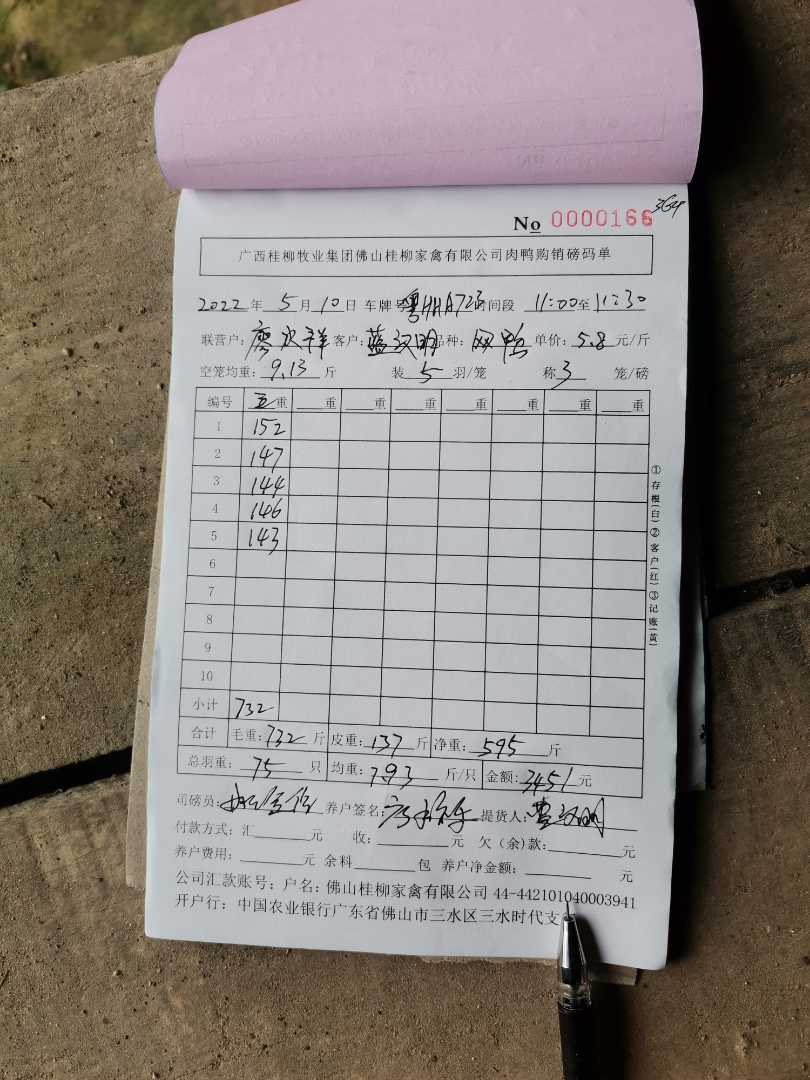 No 0000166
364
广西桂柳牧业集团佛山桂柳家禽有限公司肉鸭购销磅码单
2022年 5月 10日 车牌号 粤HHA723 时间段 11:00至11:30
联营户: 廖次祥 客户: 蓝汉明 品种: 网鸭 单价: 5.8元/斤
空笼均重: 9.13斤 装5羽/笼 称3笼/磅
编号 五重 重 重 重 重 重 重 重
1 152
2 147
3 144
4 146
5 143
6
7
8
9
10
小计 732
合计 毛重:732斤 皮重:137斤 净重:595斤
总羽重:75只 均重:793斤/只 金额:3451元
司磅员: 养户签名: 提货人:
付款方式:汇 元 收: 元 欠(余)款: 元
养户费用: 元 余料 包 养户净金额: 元
公司汇款账号:户名:佛山桂柳家禽有限公司 44-442101040003941
开户行:中国农业银行广东省佛山市三水区三水时代支
①存根(白)②客户(红)③记账(黄)